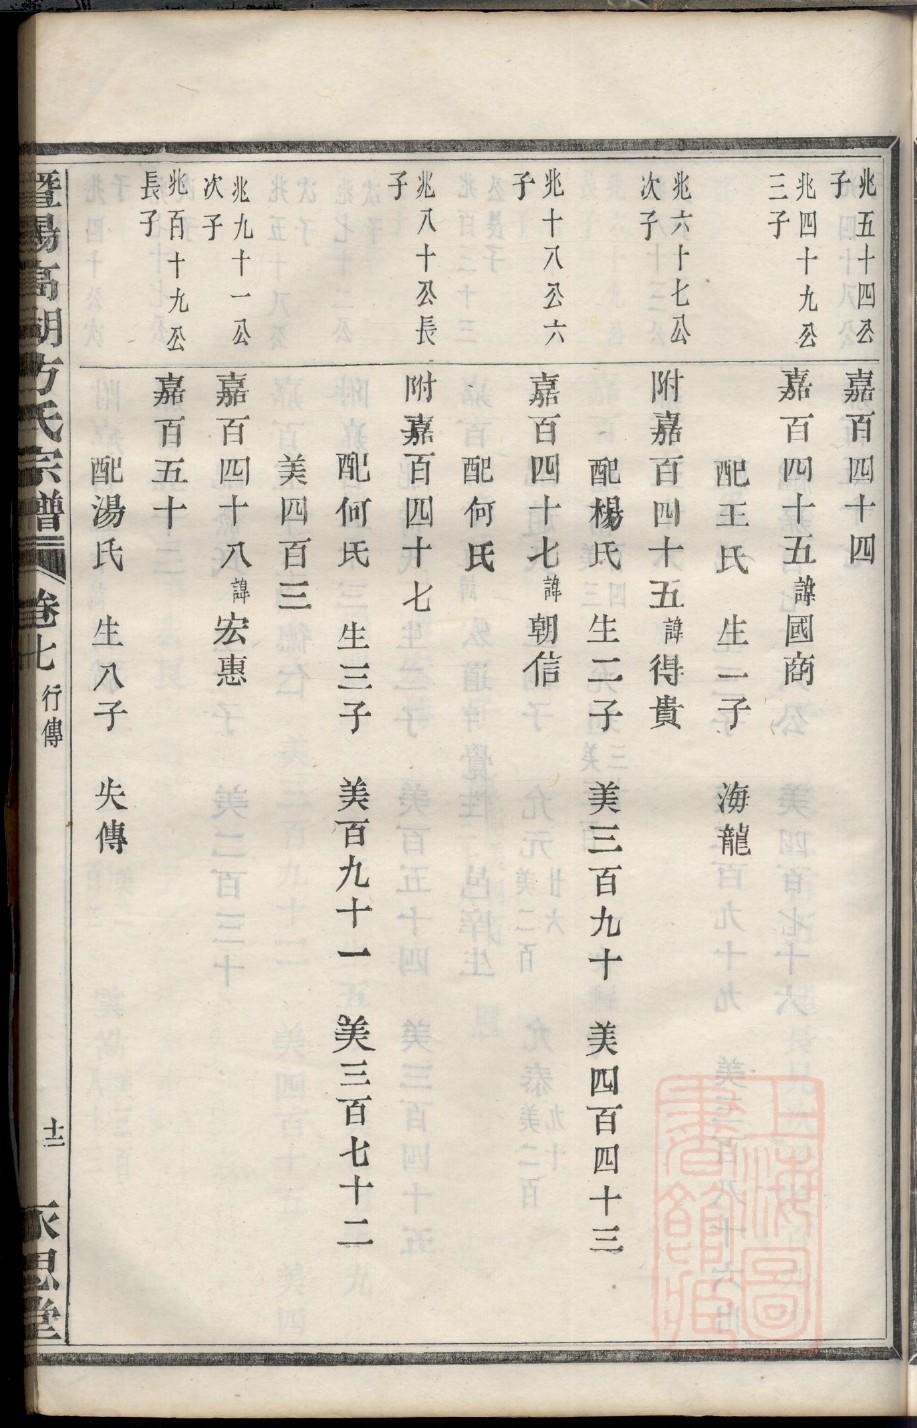 兆五十四公
子
嘉百四十四
兆四十九公
三子
嘉百四十五諱國商
配王氏 生一子 海龍
兆六十七公
次子
附嘉百四十五諱得貴
配楊氏 生二子 美三百九十 美四百四十三
兆十八公六
子
嘉百四十七諱朝信
配何氏
兆八十公長
子
附嘉百四十七
配何氏 生三子 美百九十一 美三百七十二
美四百三
兆九十一公
次子
嘉百四十八諱宏惠
兆百十九公
長子
嘉百五十
配湯氏 生八子 失傳
暨陽高湖方氏宗譜 卷七 行傳 十二 永思堂
上海圖書館藏